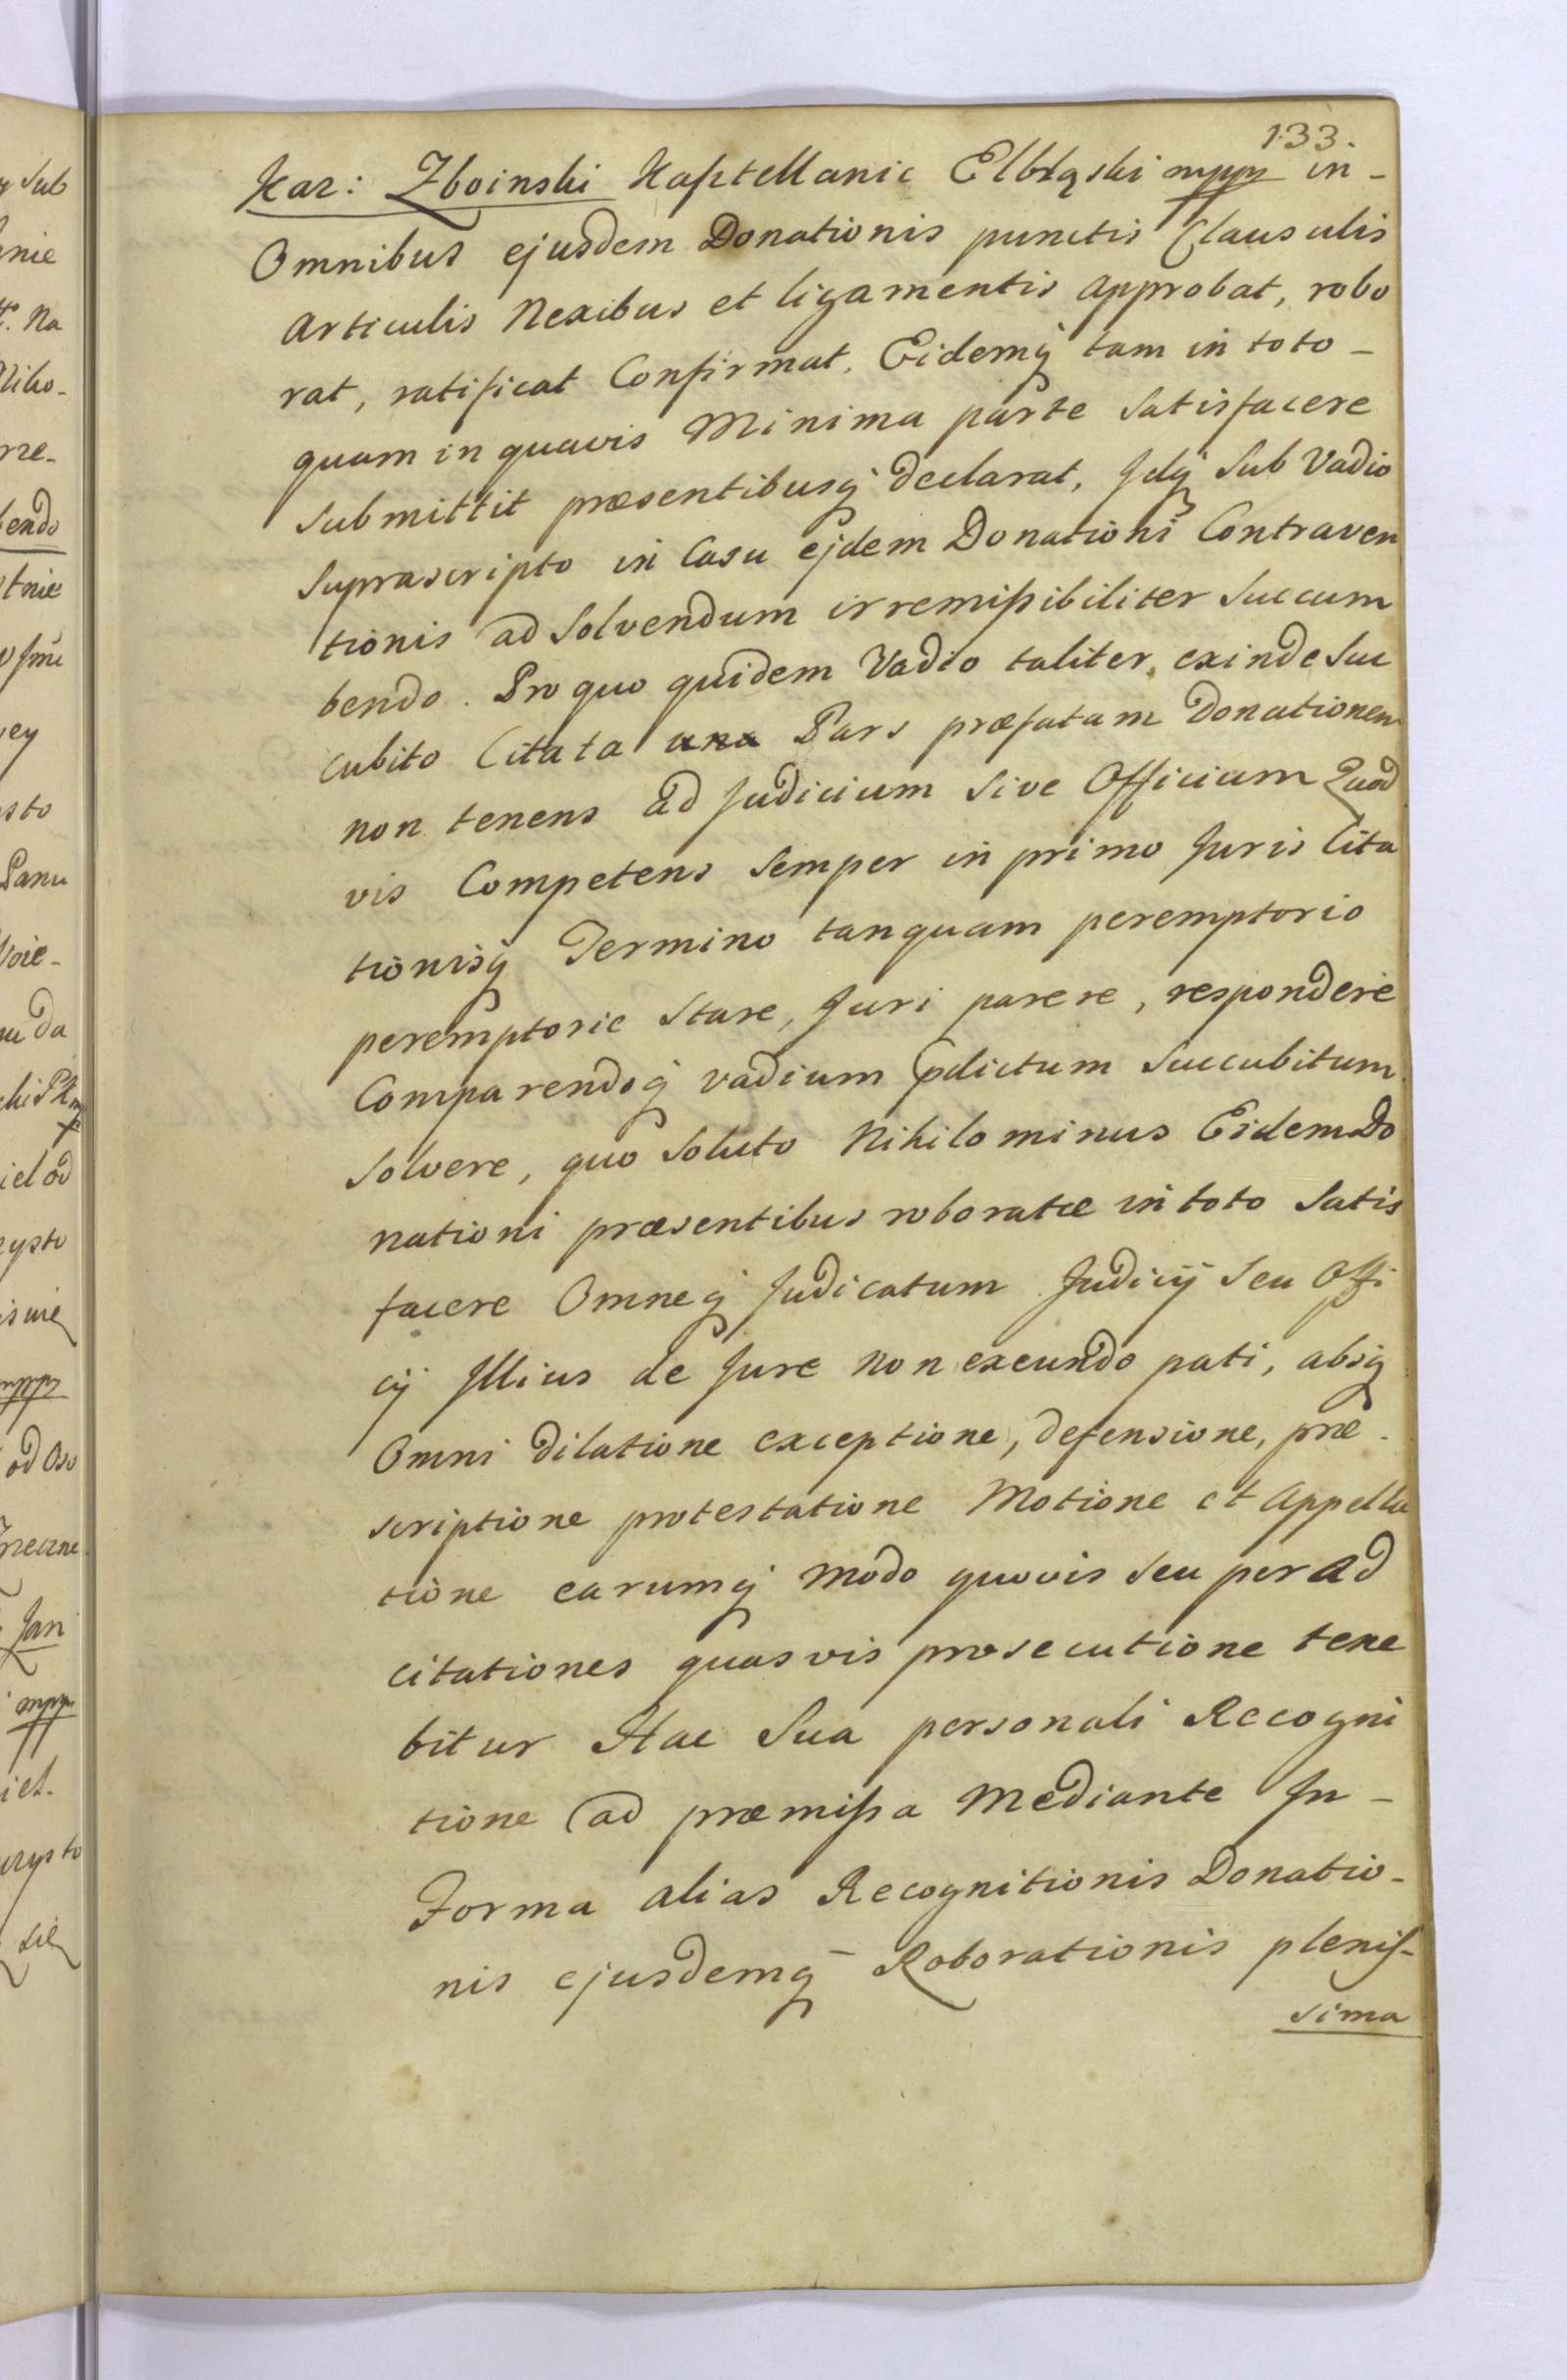 133.
Kaz: Zboinski Kasztellanic Elbląski mppr in-
Omnibus ejusdem Donationis punctis Clausulis
Articulis Nexibus et ligamentis approbat, robo
rat, ratificat Confirmat. Eidemq tam in toto-
quam in quavis Minima parte Satisfacere
Submittit præsentibusq declarat, Idq Sub Vadio
Suprascripto in Casu ejdem Donationi Contraven
tionis ad Solvendum irremissibiliter Succum
bendo. Pro quo quidem Vadio taliter, exinde Suc
cubito Citata una Pars præfatam Donationem
non tenens ad Judicium Sive Officium Quod
vis Competens Semper in primo Juris Cita
tionisq Termino tanquam peremptorio
peremptorie Stare, Juri parere, respondere
Comparendoq vadium pdictum Succubitum
Solvere, quo Soluto Nihilominus Eidem Do
nationi præsentibus roboratæ in toto Satis
facere Omneq Judicatum Judicij Seu Offi
cij Illius de Jure non exeundo pati, absq
Omni dilatione exceptione, defensione, præ-
scriptione protestatione Motione et Appella
tione earumq modo quovis Seu per ad
citationes quasvis prosecutione tene
bitur Hac Sua personali Recogni
tione ad præmissa Mediante In-
Forma alias Recognitionis Donatio-
nis ejusdemq Roborationis plenis-
sima